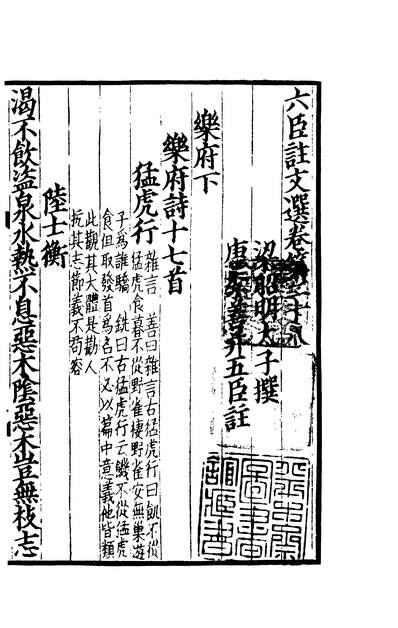 六臣註文選卷第二十八
梁昭明太子撰
唐李善并五臣註
樂府下
樂府詩十七首
猛虎行
雜言 善曰雜言古猛虎行曰飢不從
猛虎食暮不從野雀棲野雀安無巢遊
子為誰驕 銑曰古猛虎行云飢不從猛虎
食但取發首為名不必以篇中意義他皆類
此觀其大體是勸人
抗其志節義不苟容
陸士衡
渴不飲盜泉水熱不息惡木陰惡木豈無枝志